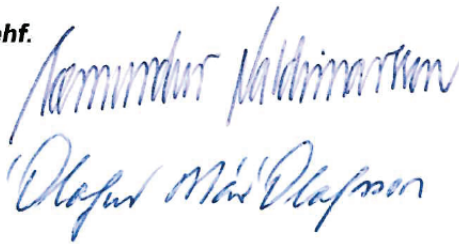 ehf.
Sæmundur Valdimarsson
Ólafur Már Ólafsson